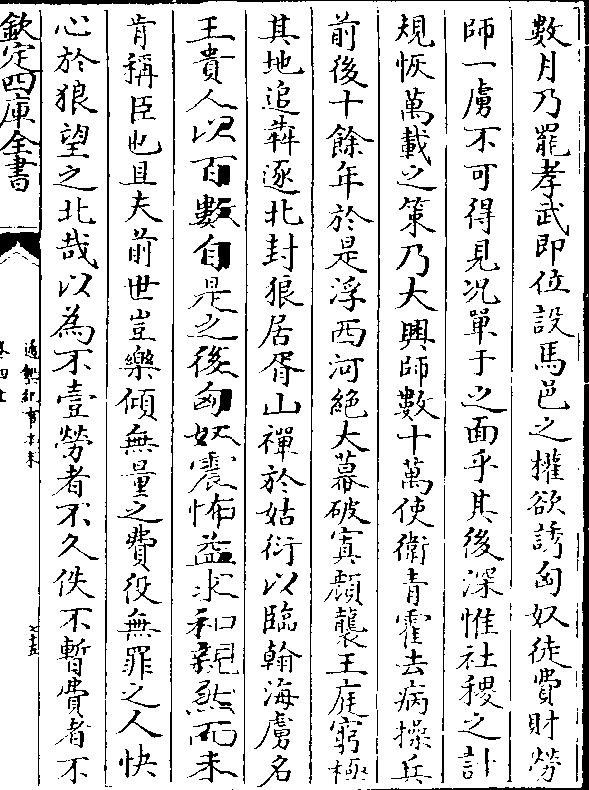 數月乃罷孝武即位設馬邑之權欲誘匈奴徒費財勞
師一虜不可得見况單于之面乎其後深惟社稷之計
規恢萬載之策乃大興師數十萬使衛青霍去病操兵
前後十餘年於是浮西河絶大幕破寘顔襲王庭窮極
其地追犇逐北封狼居胥山禪於姑衍以臨翰海虜名
王貴人以百數自是之後匈奴震怖益求和親然而未
肯稱臣也且夫前世豈樂傾無量之費役無罪之人快
心於狼望之北哉以為不壹勞者不久佚不暫費者不
欽定四庫全書
通鑑紀事本末